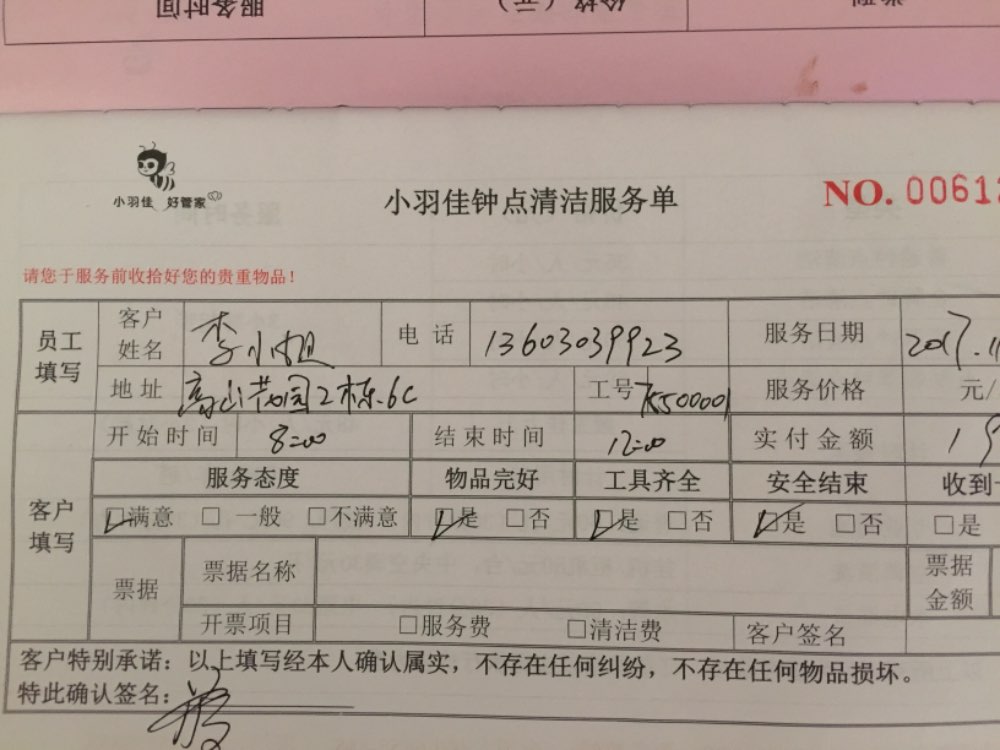 服务时间 价格（元）
小羽佳 好管家
小羽佳钟点清洁服务单
NO. 00612
请您于服务前收拾好您的贵重物品！
员工填写 客户姓名 李小姐 电话 13603039923 服务日期 2017.11
地址 高山花园2栋.6C 工号 7550001 服务价格 元/
客户填写 开始时间 8:00 结束时间 12:00 实付金额
服务态度 物品完好 工具齐全 安全结束 收到
☑满意 □一般 □不满意 ☑是 □否 ☑是 □否 ☑是 □否 □是
票据 票据名称 票据金额
开票项目 □服务费 □清洁费 客户签名
客户特别承诺：以上填写经本人确认属实，不存在任何纠纷，不存在任何物品损坏。
特此确认签名：